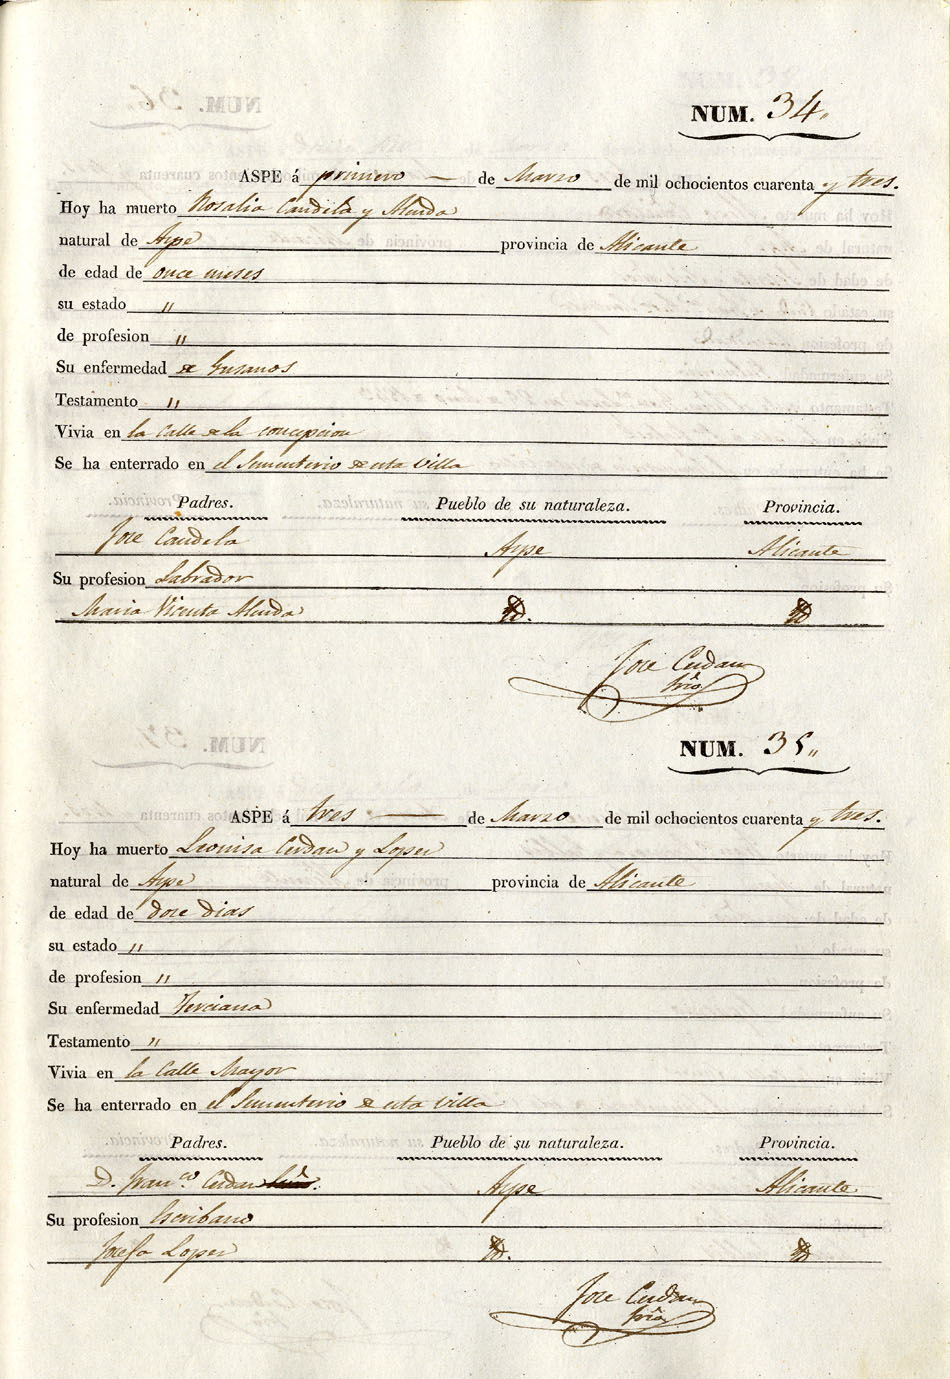 NUM. 34.
ASPE á primero — de Marzo de mil ochocientos cuarenta y tres.
Hoy ha muerto Rosalia Candela y Almda
natural de Aspe provincia de Alicante
de edad de once meses
su estado "
de profesion "
Su enfermedad de Gusanos
Testamento "
Vivia en la Calle de la Concepcion
Se ha enterrado en el Sementerio de esta Villa
Padres. Pueblo de su naturaleza. Provincia.
Jose Candela Aspe Alicante
Su profesion Labrador
Maria Vicenta Id. Id
Jose Cerdan
NUM. 35.
ASPE á tres — de Marzo de mil ochocientos cuarenta y tres.
Hoy ha muerto Leonisa Cerdan y Lopez
natural de Aspe provincia de Alicante
de edad de doce dias
su estado "
de profesion "
Su enfermedad Terciana
Testamento "
Vivia en la Calle Mayor
Se ha enterrado en el Sementerio de esta Villa
Padres. Pueblo de su naturaleza. Provincia.
D. Franco. Cerdan Aspe Alicante
Su profesion Escribano
Josefa Lopez Id. Id
Jose Cerdan